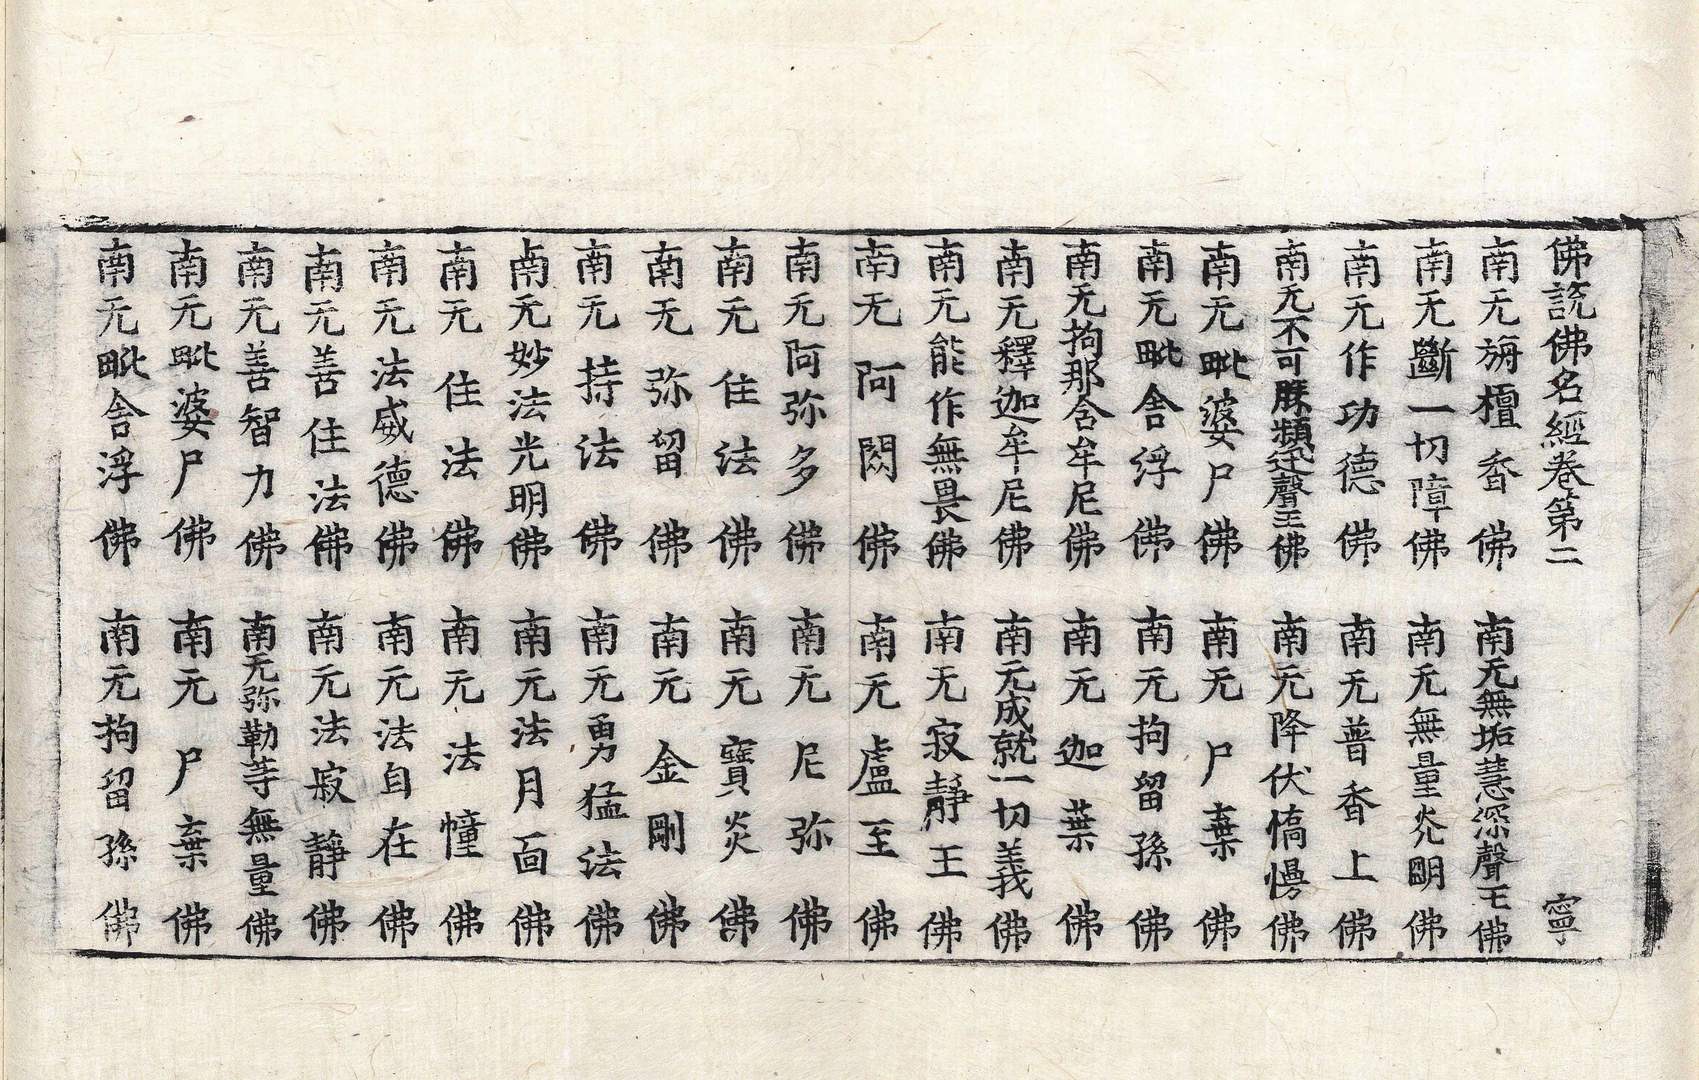 佛說佛名經卷第二 寧
南无旃檀香佛 南无無垢慧深聲王佛
南无斷一切障佛 南无無量光明佛
南无作功德佛 南无普香上佛
南无不可勝頻迊聲王佛 南无降伏憍慢佛
南无毗婆尸佛 南无尸棄佛
南无毗舍浮佛 南无拘留孫佛
南无拘那含牟尼佛 南无迦葉佛
南无釋迦牟尼佛 南无成就一切義佛
南无能作無畏佛 南无寂靜王佛
南无阿閦佛 南无盧至佛
南无阿弥多佛 南无尼弥佛
南无住法佛 南无寶炎佛
南无弥留佛 南无金剛佛
南无持法佛 南无勇猛法佛
南无妙法光明佛 南无法月面佛
南无住法佛 南无法幢佛
南无法威德佛 南无法自在佛
南无善住法佛 南无法寂靜佛
南无善智力佛 南无弥勒等無量佛
南无毗婆尸佛 南无尸棄佛
南无毗舍浮佛 南无拘留孫佛